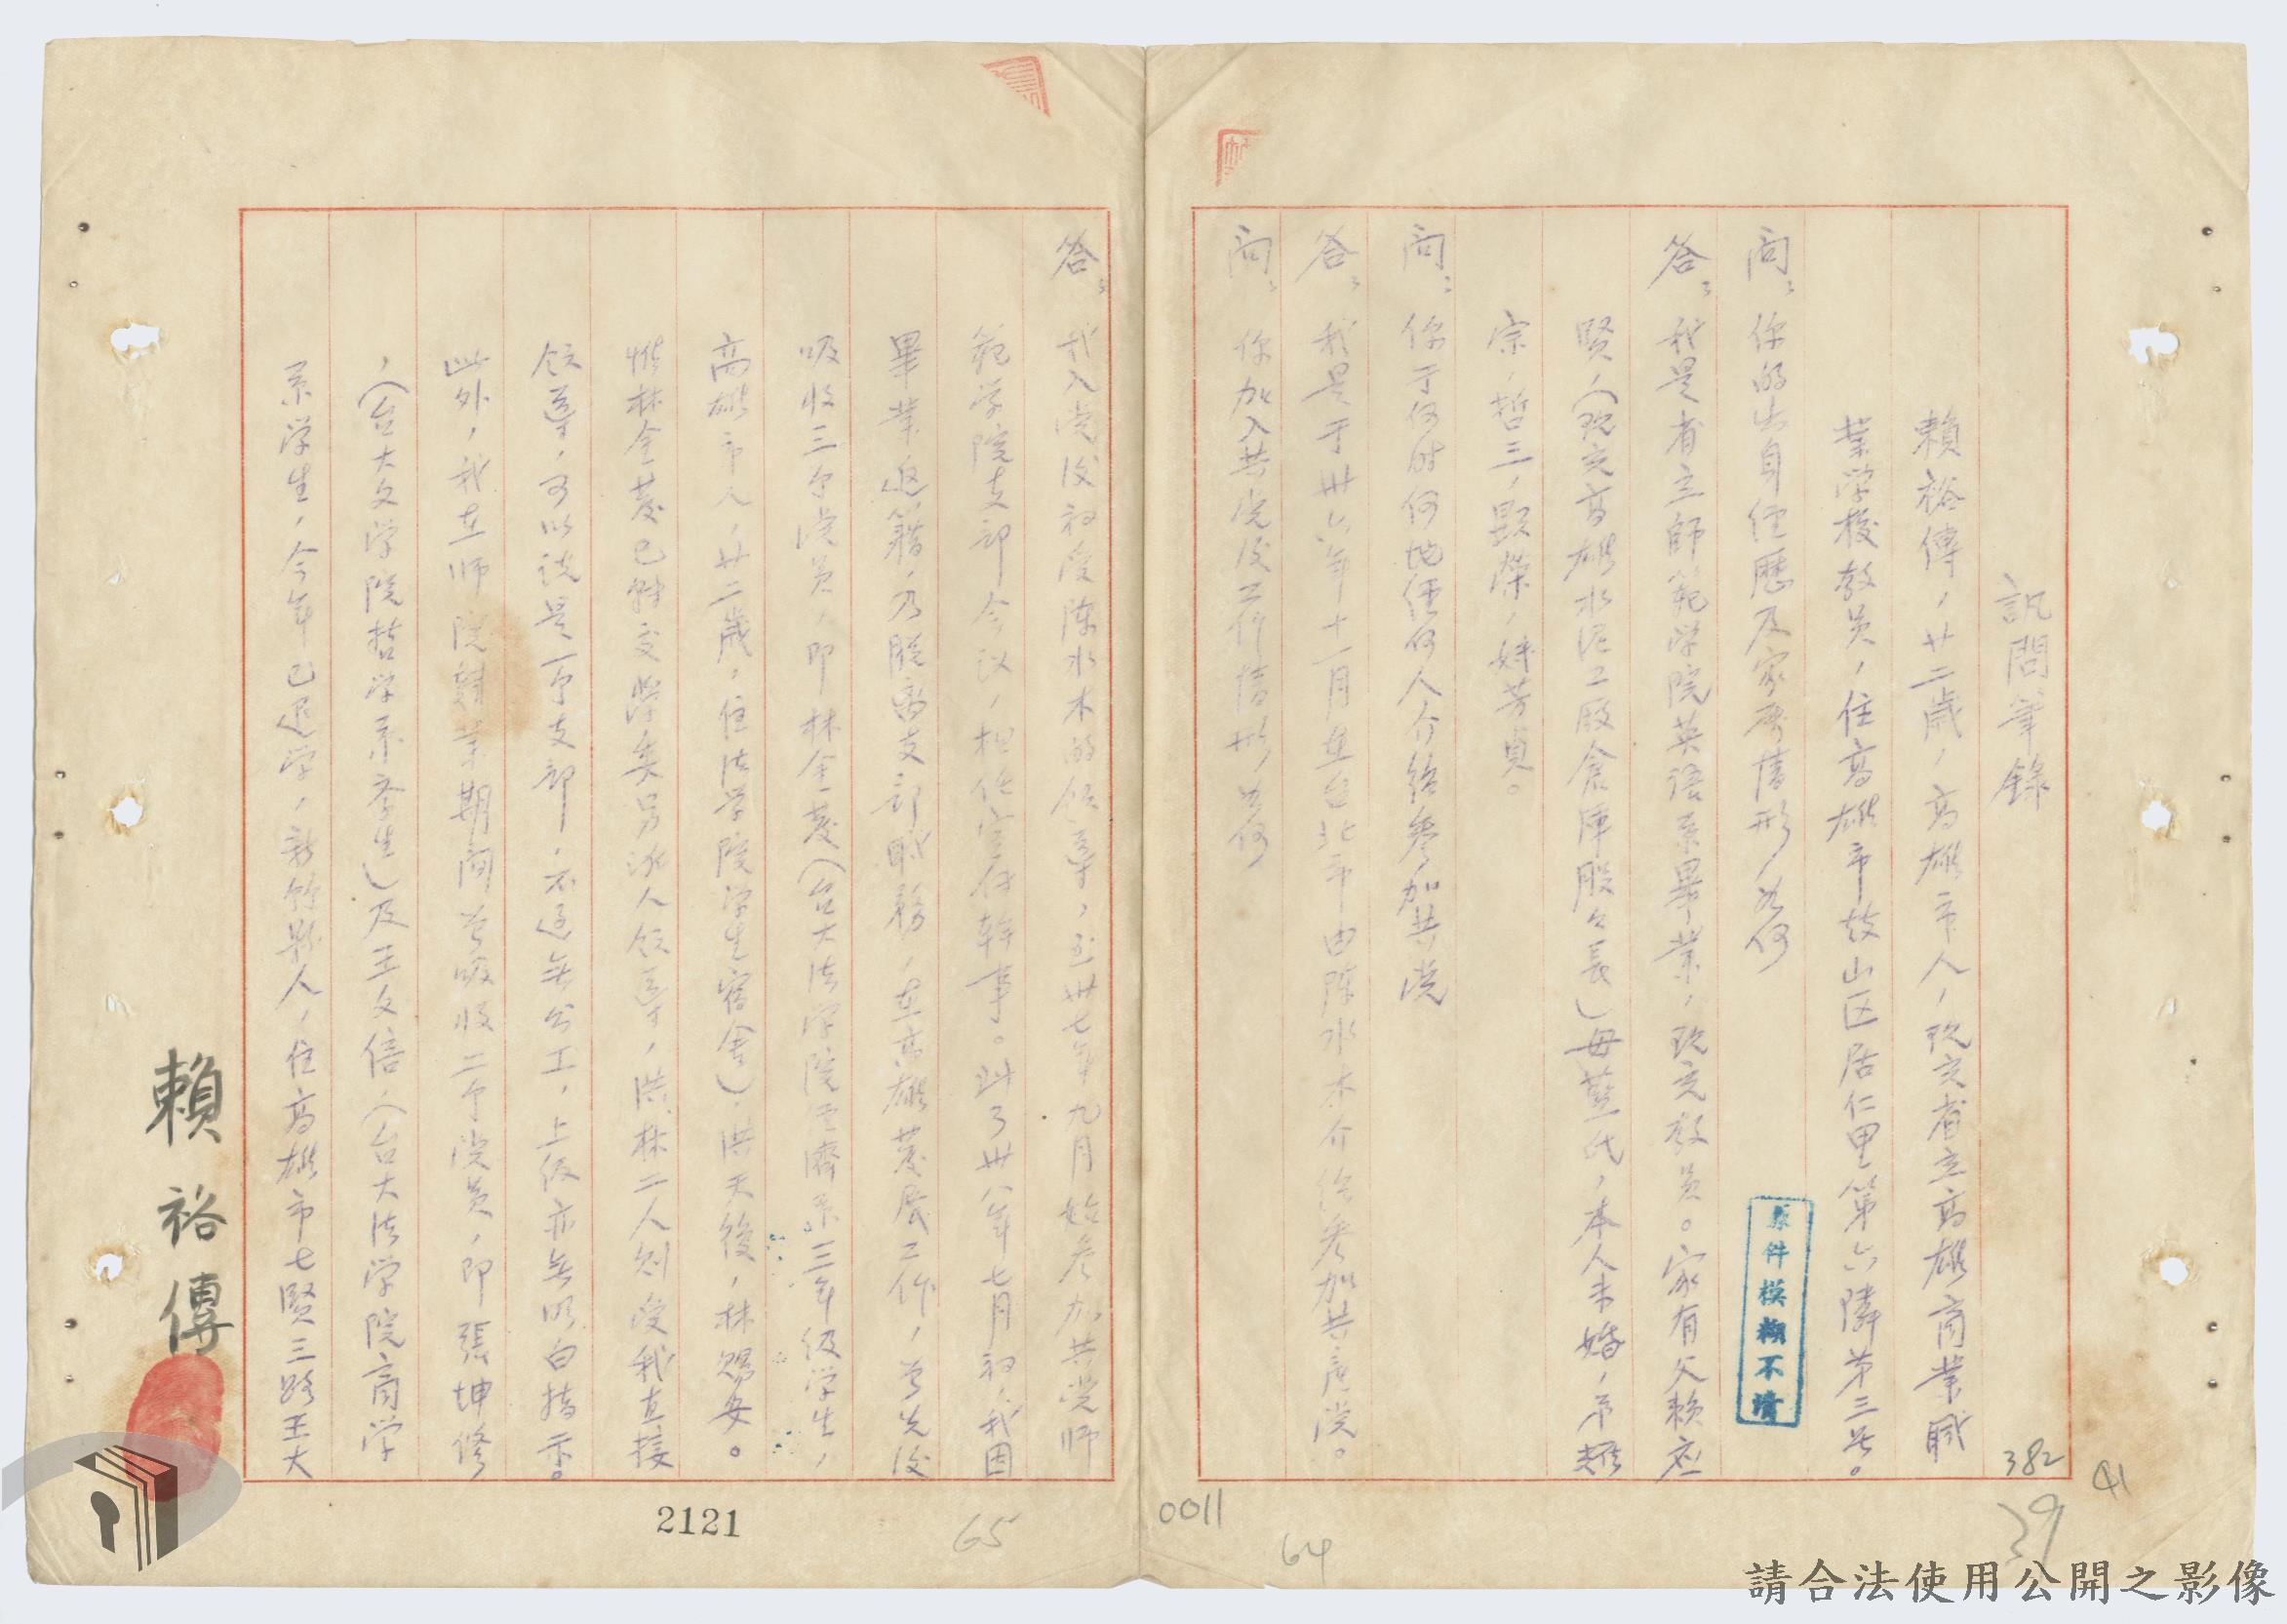 訊問筆錄
賴裕傳，廿二歲，高雄市人，現充省立高雄商業職
業学校教員，住高雄市鼓山区居仁里第六隣第三号。
問：你的出身经歷及家庭情形如何
答：我是省立師範学院英语系畢業，現充教员。家有父賴応
賢，（現充高雄水泥工厰倉庫股々長）母藍氏，本人未婚，弟耀
宗，哲三，顯榮，妹芳貞。
問：你于何时何地经何人介绍参加共党
答：我是于卅六年十一月在台北市由陳水木介绍参加共産党。
問：你加入共党後工作情形如何
答：我入党後初受陳水木的领导，至卅七年九月始参加共党师
範学院支部会议，担任宣传幹事。到了卅八年七月初，我因
畢業返籍，乃脱离支部职務，在高雄發展工作，曾先後
吸收三个党员，即林金茂（台大法学院经濟系三年级学生，
高雄市人，廿二歲，住法学院学生宿舍），洪天後，林賜安。
惟林金茂已轉交学委另派人领导，洪林二人则受我直接
领導，可以说是一个支部，不过無分工，上级亦無明白指示。
此外，我在师院肄業期间曾吸收二个党员，即張坤修
，（台大文学院哲学系学生）及王文信，（台大法学院商学
系学生，今年已退学，新竹縣人，住高雄市七賢三路王大
賴裕傳
原件模糊不清
382
41
39
0011
64
65
2121
請合法使用公開之影像